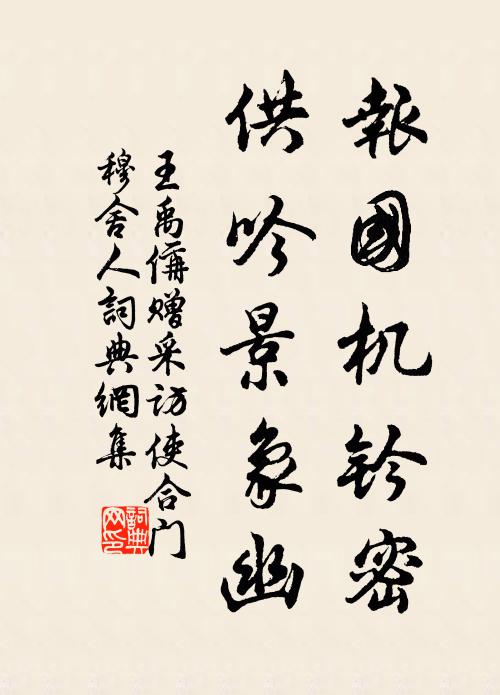 報國机鈐密
供吟景象幽
王禹偁贈采訪使合门
穆舍人詞典網集
詞典网印